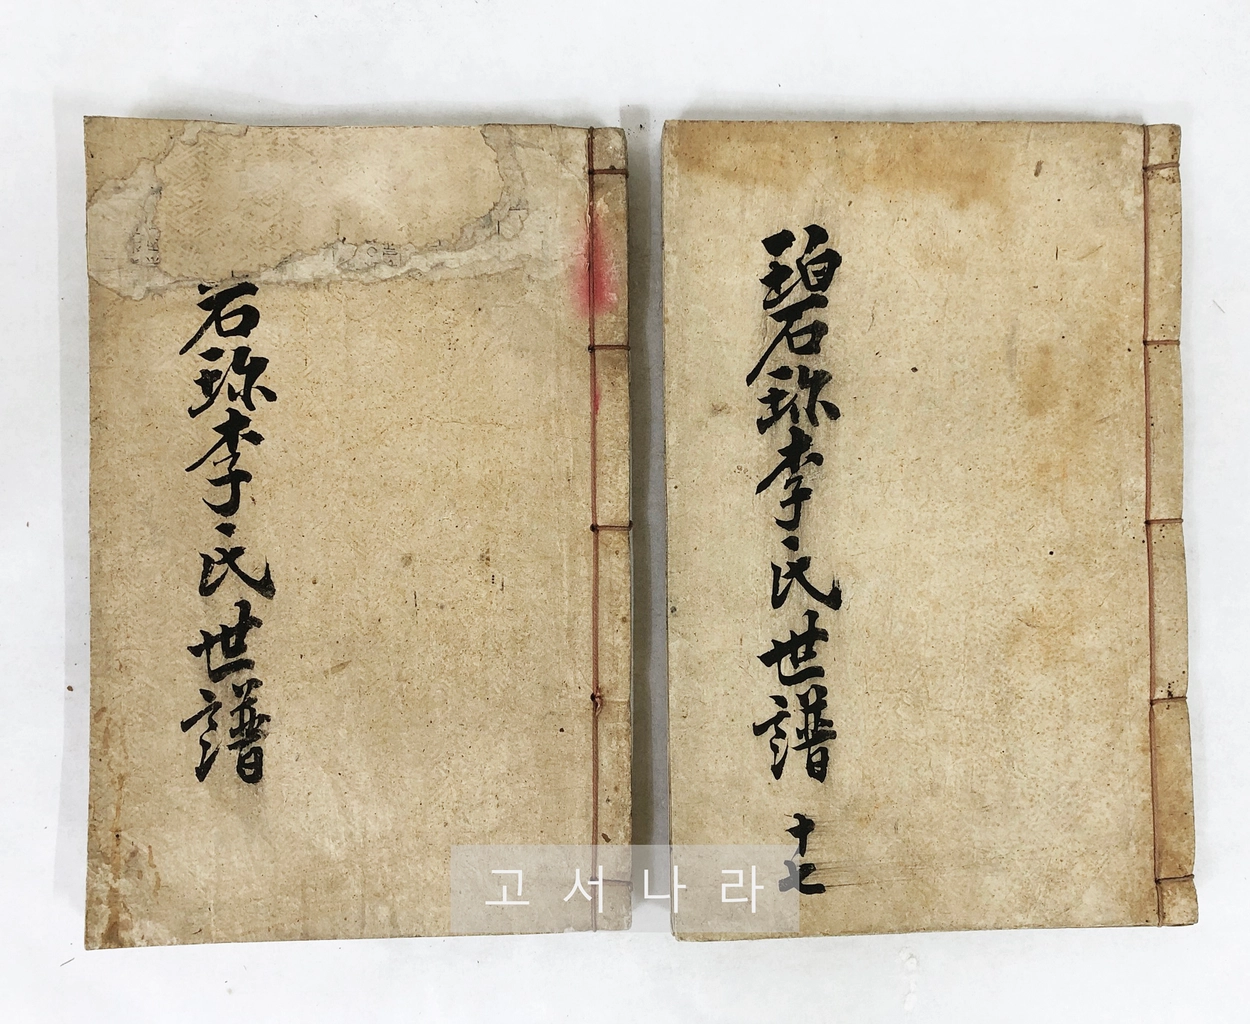 碧珎李氏世譜 十七
珎李氏世譜
고서나라